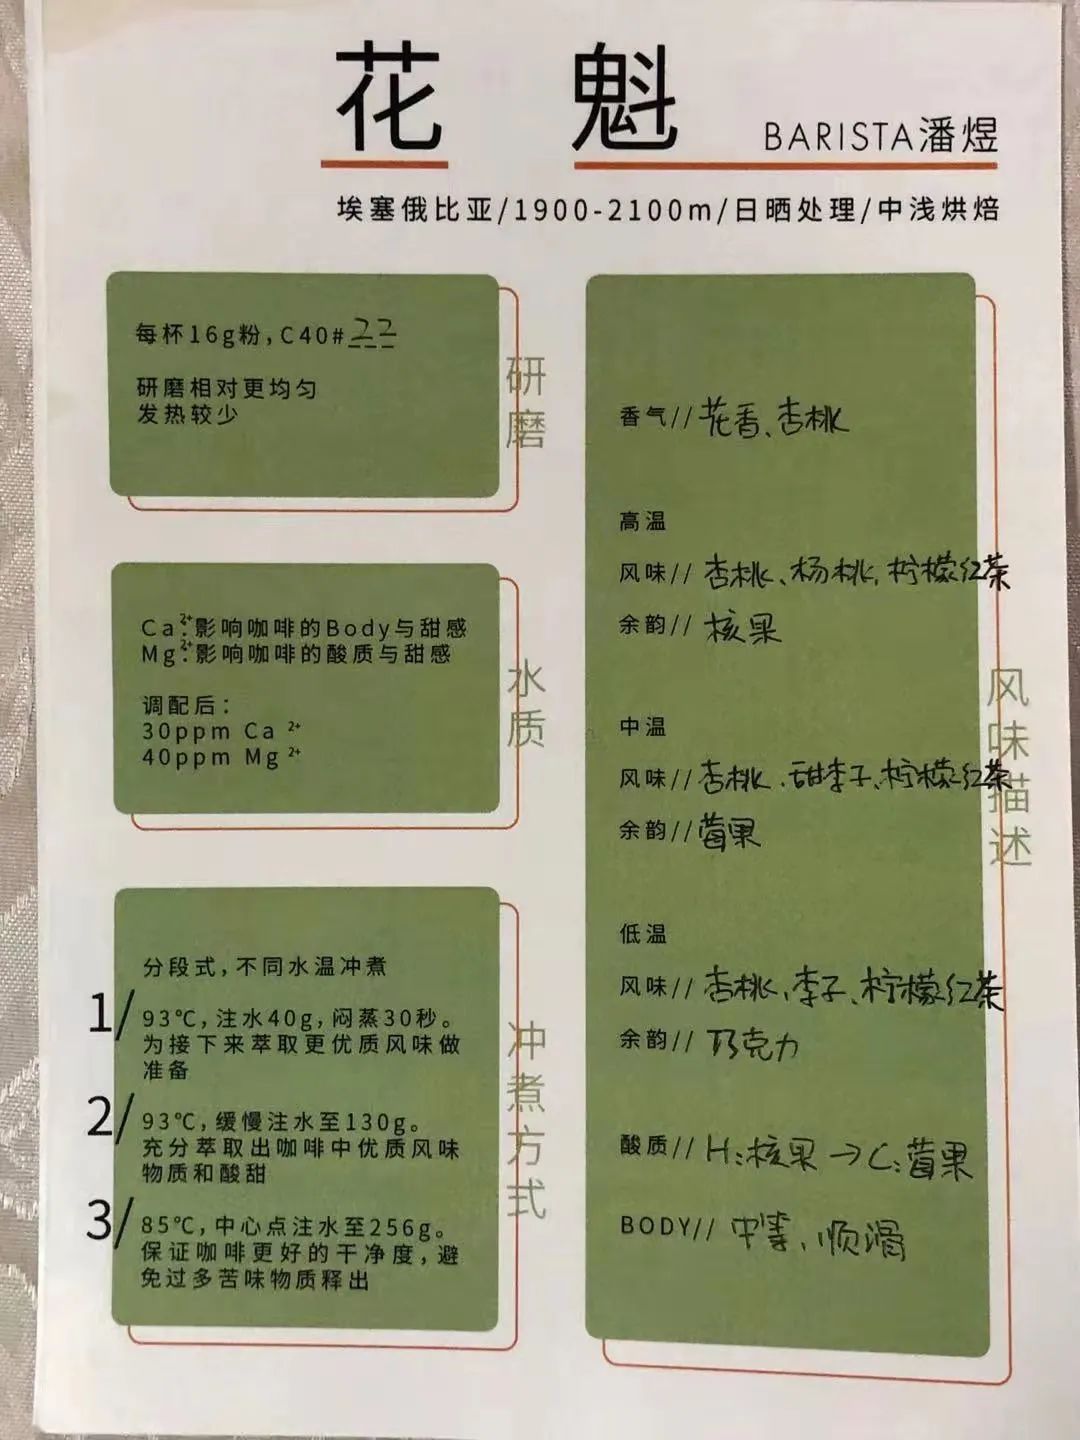 花 魁
BARISTA潘煜
埃塞俄比亚/1900-2100m/日晒处理/中浅烘焙
每杯16g粉,C40#22
研磨相对更均匀
发热较少
研磨
Ca²⁺:影响咖啡的Body与甜感
Mg²⁺:影响咖啡的酸质与甜感
调配后:
30ppm Ca ²⁺
40ppm Mg ²⁺
水质
分段式,不同水温冲煮
1/
93℃,注水40g,闷蒸30秒。
为接下来萃取更优质风味做
准备
2/
93℃,缓慢注水至130g。
充分萃取出咖啡中优质风味
物质和酸甜
3/
85℃,中心点注水至256g。
保证咖啡更好的干净度,避
免过多苦味物质释出
冲煮方式
香气//花香、杏桃
高温
风味//杏桃、杨桃,柠檬红茶
余韵//核果
中温
风味//杏桃、甜李子、柠檬红茶
余韵//莓果
低温
风味//杏桃、李子、柠檬红茶
余韵//巧克力
酸质//H:核果→C:莓果
BODY//中等、顺滑
风味描述